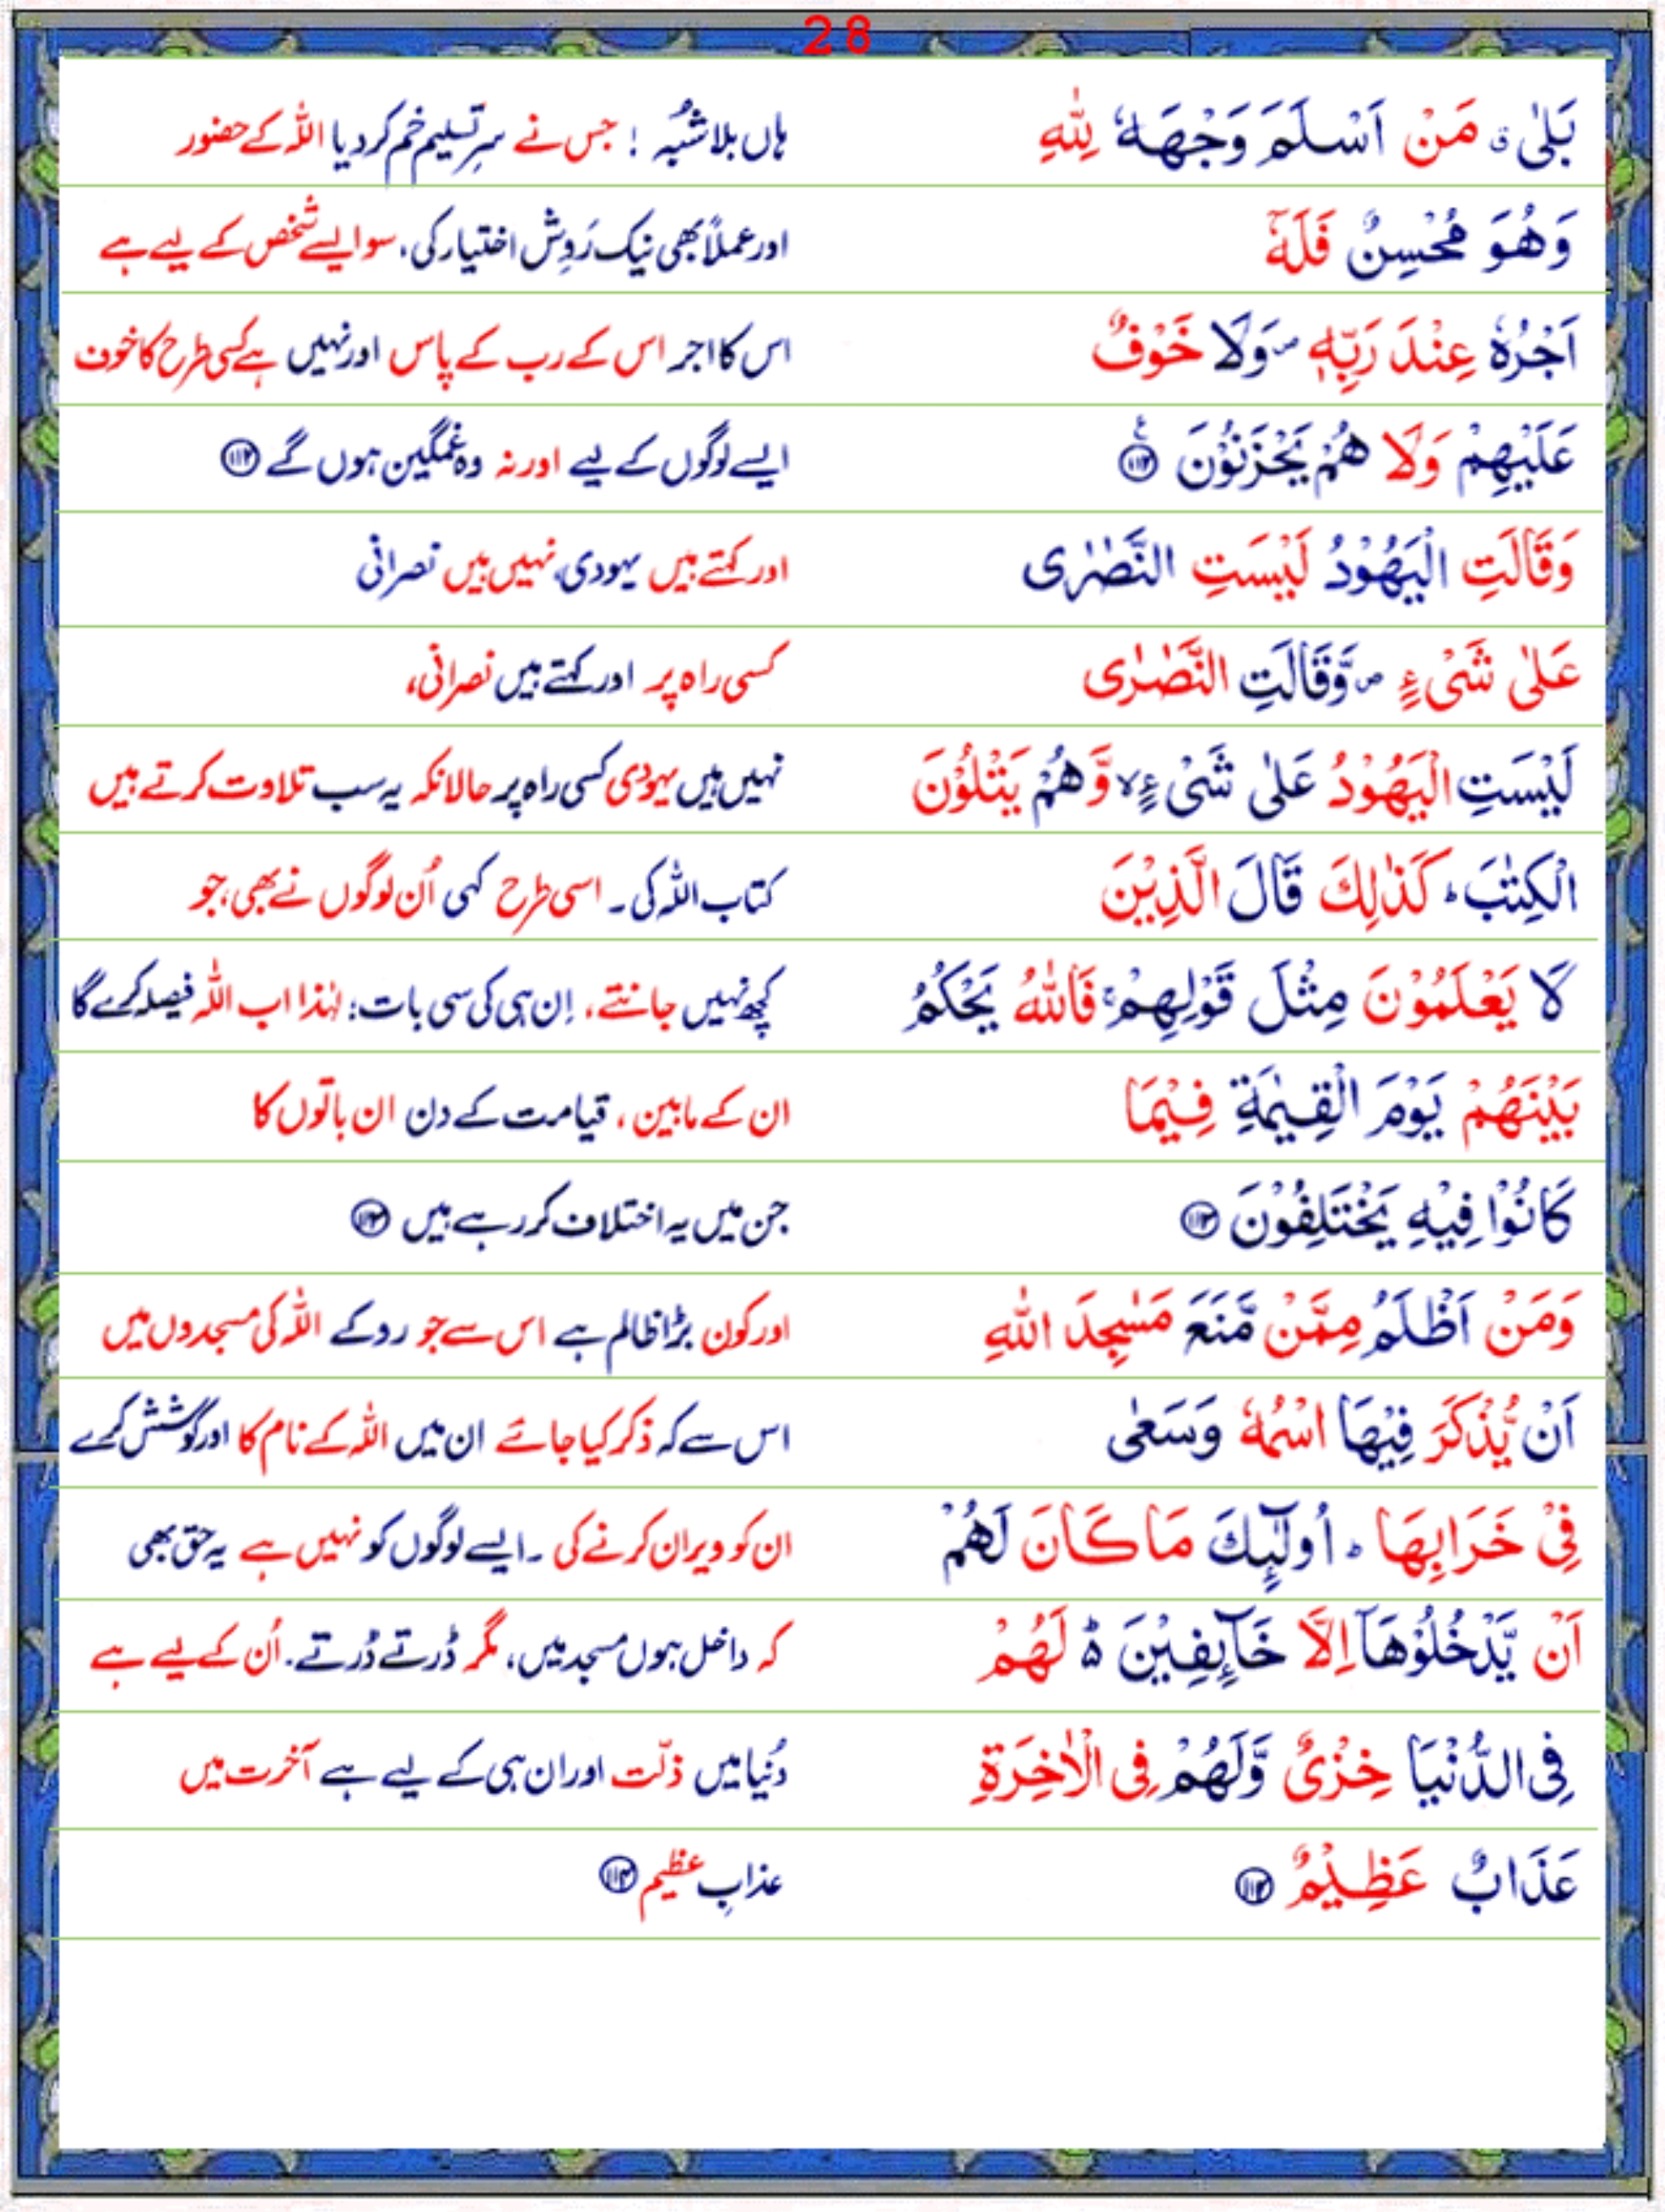 28
بَلٰی ۗ مَنْ اَسْلَمَ وَجْهَهٗ لِلّٰهِ ہاں بلاشُبہ ! جس نے سرِ تسلیم خم کر دیا اللہ کے حضور
وَهُوَ مُحْسِنٌ فَلَهٗۤ اور عملاً بھی نیک رَوِش اختیار کی، سو ایسے شخص کے لیے ہے
اَجْرُهٗ عِنْدَ رَبِّهٖ ۪ وَلَا خَوْفٌ اس کا اجر اس کے رب کے پاس اور نہیں ہے کسی طرح کا خوف
عَلَیْهِمْ وَلَا هُمْ یَحْزَنُوْنَ ﴿۱۱۲﴾ ع ایسے لوگوں کے لیے اور نہ وہ غمگین ہوں گے ﴿۱۱۲﴾
وَقَالَتِ الْیَهُوْدُ لَیْسَتِ النَّصٰرٰی اور کہتے ہیں یہودی، نہیں ہیں نصرانی
عَلٰی شَیْءٍ ۪ وَّقَالَتِ النَّصٰرٰی کسی راہ پر اور کہتے ہیں نصرانی،
لَیْسَتِ الْیَهُوْدُ عَلٰی شَیْءٍ ۙ وَّهُمْ یَتْلُوْنَ نہیں ہیں یہودی کسی راہ پر حالانکہ یہ سب تلاوت کرتے ہیں
الْكِتٰبَ ؕ كَذٰلِكَ قَالَ الَّذِیْنَ کتاب اللہ کی۔ اسی طرح کہی اُن لوگوں نے بھی، جو
لَا یَعْلَمُوْنَ مِثْلَ قَوْلِهِمْ ۚ فَاللّٰهُ یَحْكُمُ کچھ نہیں جانتے، اِن ہی کی سی بات: لہٰذا اب اللہ فیصلہ کرے گا
بَیْنَهُمْ یَوْمَ الْقِیٰمَةِ فِیْمَا ان کے مابین، قیامت کے دن ان باتوں کا
كَانُوْا فِیْهِ یَخْتَلِفُوْنَ ﴿۱۱۳﴾ جن میں یہ اختلاف کر رہے ہیں ﴿۱۱۳﴾
وَمَنْ اَظْلَمُ مِمَّنْ مَّنَعَ مَسٰجِدَ اللّٰهِ اور کون بڑا ظالم ہے اس سے جو روکے اللہ کی مسجدوں میں
اَنْ یُّذْكَرَ فِیْهَا اسْمُهٗ وَسَعٰی اس سے کہ ذکر کیا جائے ان میں اللہ کے نام کا اور کوشش کرے
فِیْ خَرَابِهَا ؕ اُولٰٓئِكَ مَا كَانَ لَهُمْ ان کو ویران کرنے کی ۔ ایسے لوگوں کو نہیں ہے یہ حق بھی
اَنْ یَّدْخُلُوْهَاۤ اِلَّا خَآئِفِیْنَ ؕ۬ لَهُمْ کہ داخل ہوں مسجد میں، مگر ڈرتے ڈرتے۔ اُن کے لیے ہے
فِی الدُّنْیَا خِزْیٌ وَّلَهُمْ فِی الْاٰخِرَةِ دُنیا میں ذلّت اور ان ہی کے لیے ہے آخرت میں
عَذَابٌ عَظِیْمٌ ﴿۱۱۴﴾ عذابِ عظیم ﴿۱۱۴﴾